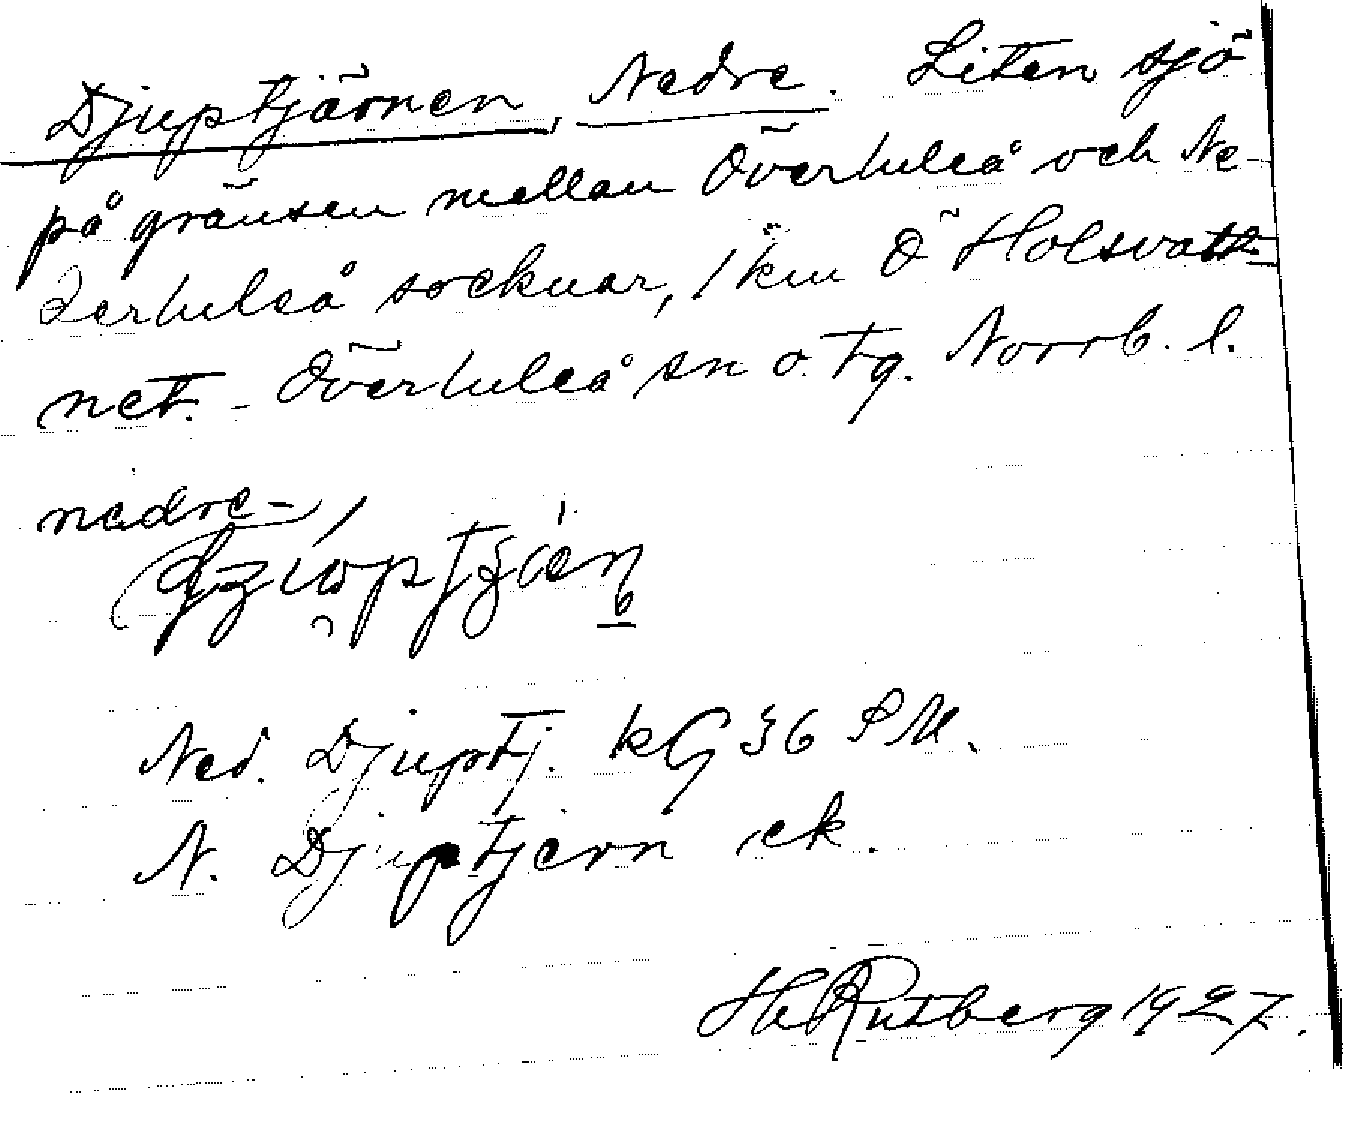 Djuptjärnen, Nedre. Liten sjö
på gränsen mellan Överluleå och Ne-
derluleå socknar, 1 km Ö Holsvatt-
net. - Överluleå sn o. tg. Norrb. l.
nedre-
Ned. Djuptj. kG 36 SM.
N. Djuptjern ek.
Hr Rutberg 1927.